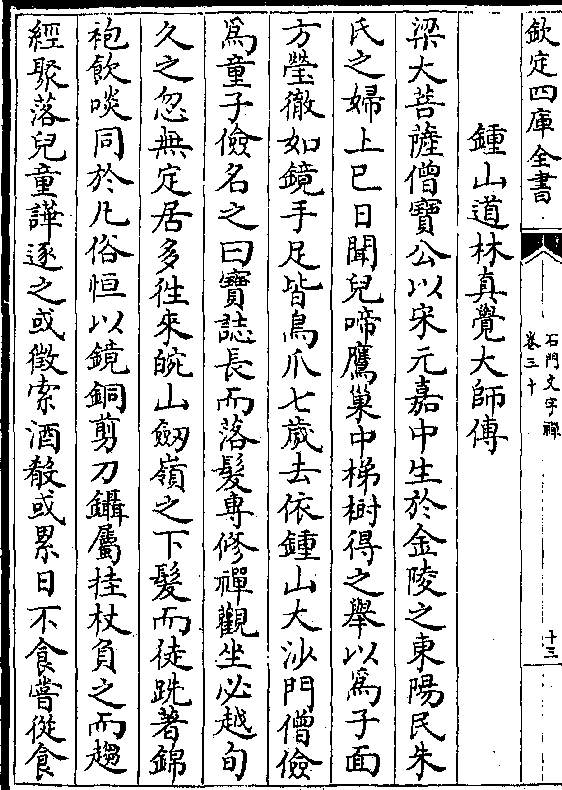 欽定四庫全書
石門文字禪
卷三十
十三
鍾山道林真覺大師傳
梁大菩薩僧寶公以宋元嘉中生於金陵之東陽民朱
氏之婦上巳日聞兒啼鷹巢中梯樹得之舉以爲子面
方瑩徹如鏡手足皆鳥爪七歲去依鍾山大沙門僧儉
爲童子儉名之曰寶誌長而落髮專修禪觀坐必越旬
久之忽無定居多徃來皖山劔嶺之下髮而徒跣著錦
袍飲啖同於凡俗恒以鏡銅剪刀鑷屬挂杖負之而趨
經聚落兒童譁逐之或徵索酒殽或累日不食嘗從食